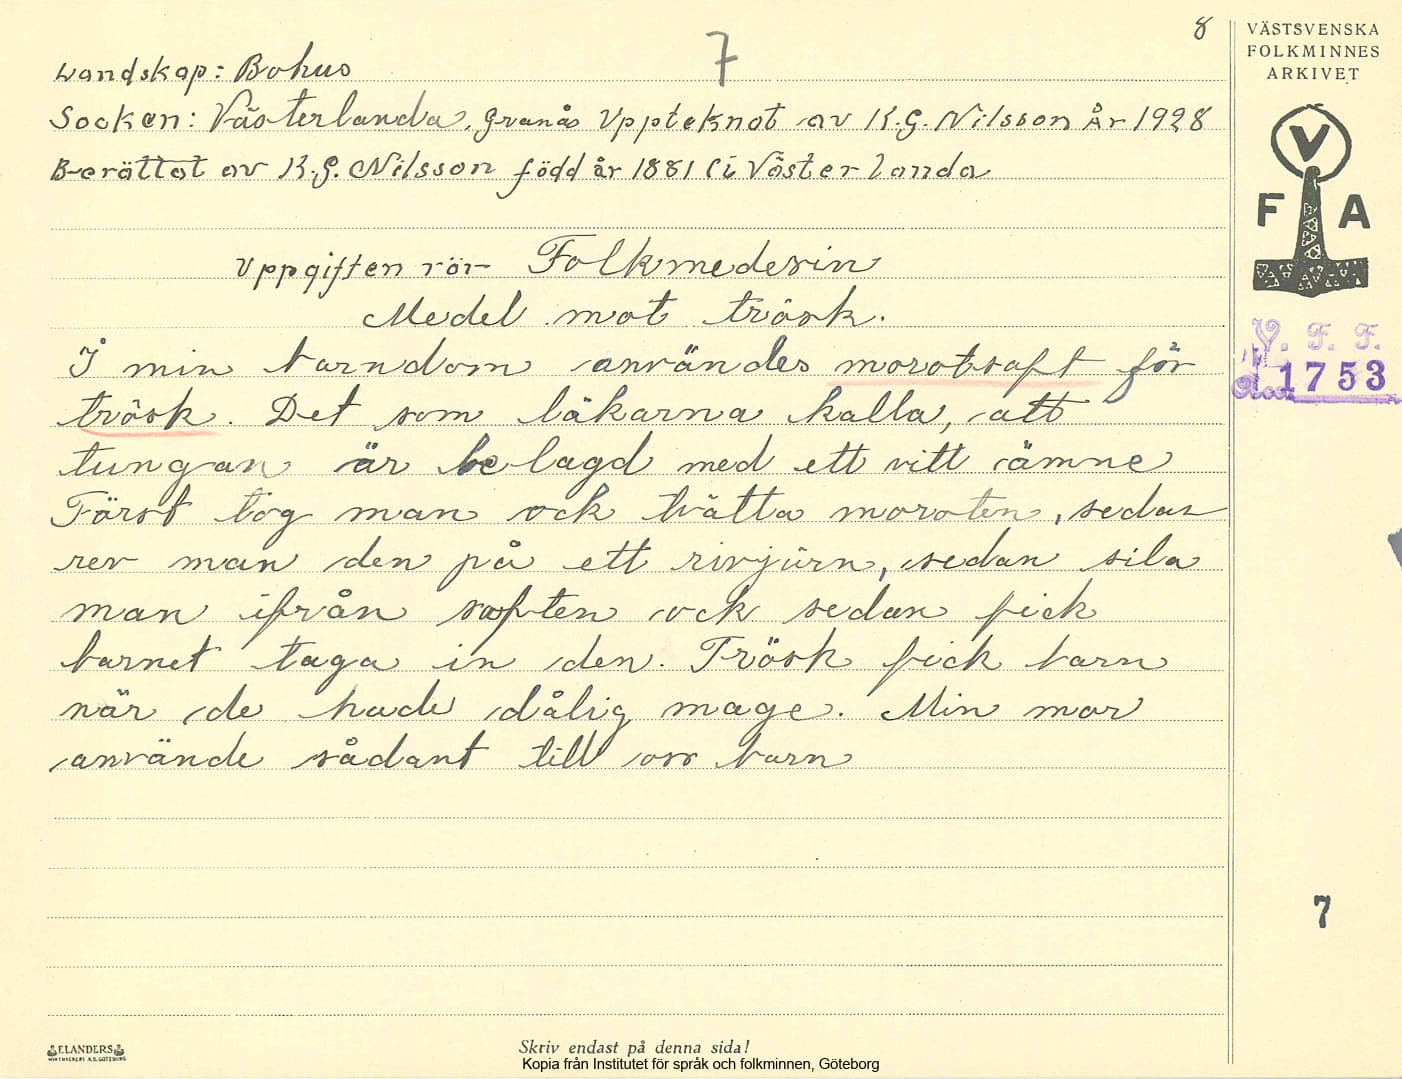 8
7
VÄSTSVENSKA
FOLKMINNES
ARKIVET
V
F A
V. F. F.
1753
Landskap: Bohus
Socken: Västerlanda, Granås Uppteknat av K.G. Nilsson År 1928
Berättat av K.G. Nilsson född år 1881 i Västerlanda
Uppgiften rör Folkmedesin
Medel mot trösk.
I min barndom användes morotsaft för
trösk. Det som läkarna kalla, att
tungan är belagd med ett vitt ämne
Först tog man ock tvätta moroten, sedan
rev man den på ett rivjärn, sedan sila
man ifrån saften ock sedan fick
barnet taga in den. Trösk fick barn
när de hade dålig mage. Min mor
använde sådant till oss barn
7
ELANDERS
Skriv endast på denna sida!
Kopia från Institutet för språk och folkminnen, Göteborg